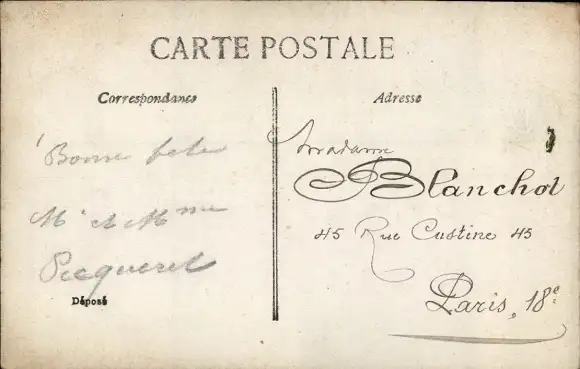 CARTE POSTALE
Correspondance
Adresse
Bonne fete
Mr et Mme
Picqueret
Déposé
Madame
Blanchot
45 Rue Custine 45
Paris, 18e